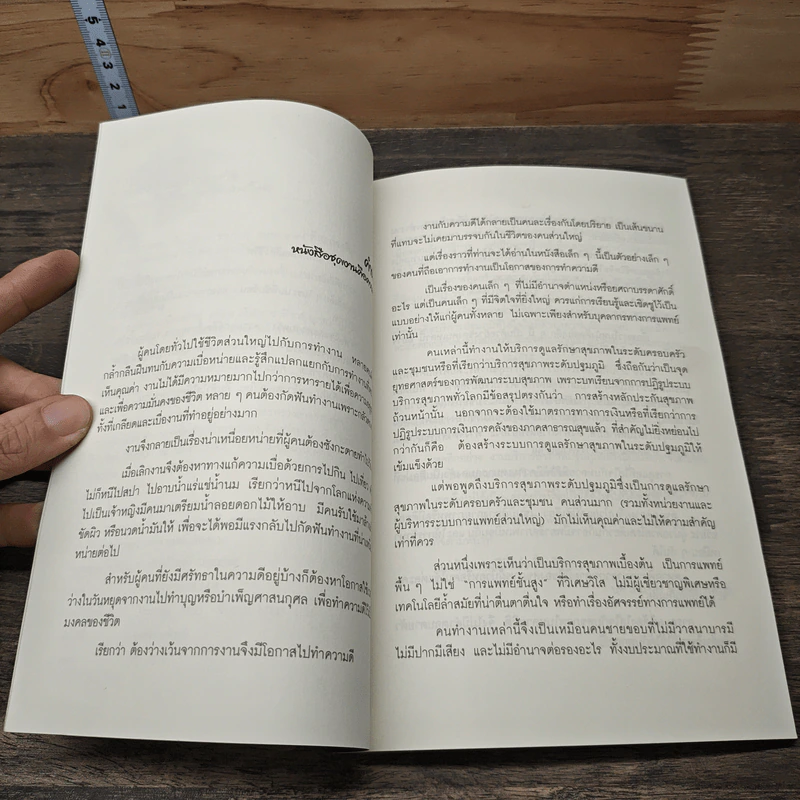 5
4
3
2
1
คำ
หนังสือชุดงานคือ
ผู้คนโดยทั่วไปใช้ชีวิตส่วนใหญ่ไปกับการทำงาน หลาย
กล้ำกลืนฝืนทนกับความเบื่อหน่ายและรู้สึกแปลกแยกกับการทำงาน
เห็นคุณค่า งานไม่ได้มีความหมายมากไปกว่าการหารายได้เพื่อความ
และเพื่อความมั่นคงของชีวิต หลาย ๆ คนต้องกัดฟันทำงานเพราะ
ทั้งที่เกลียดและเบื่องานที่ทำอยู่อย่างมาก
งานจึงกลายเป็นเรื่องน่าเหนื่อยหน่ายที่ผู้คนต้องซังกะตายทำ
เมื่อเลิกงานจึงต้องหาทางแก้ความเบื่อด้วยการไปกิน ไปเที่ยว
ไม่ก็หนีไปสปา ไปอาบน้ำแร่แช่น้ำนม เรียกว่าหนีไปจากโลกแห่งความ
ไปเป็นเจ้าหญิงมีคนมาเตรียมน้ำลอยดอกไม้ให้อาบ มีคนรับใช้มา
ขัดผิว หรือนวดน้ำมันให้ เพื่อจะได้พอมีแรงกลับไปกัดฟันทำงานที่น่า
หน่ายต่อไป
สำหรับผู้คนที่ยังมีศรัทธาในความดีอยู่บ้างก็ต้องหาโอกาสใช้
ว่างในวันหยุดจากงานไปทำบุญหรือบำเพ็ญศาสนกุศล เพื่อทำความดี
มงคลของชีวิต
เรียกว่า ต้องว่างเว้นจากการงานจึงมีโอกาสไปทำความดี
งานกับความดีได้กลายเป็นคนละเรื่องกันโดยปริยาย เป็นเส้นขนาน
ที่แทบจะไม่เคยมาบรรจบกันในชีวิตของคนส่วนใหญ่
แต่เรื่องราวที่ท่านจะได้อ่านในหนังสือเล็ก ๆ นี้เป็นตัวอย่างเล็ก ๆ
ของคนที่ถือเอาการทำงานเป็นโอกาสของการทำความดี
เป็นเรื่องของคนเล็ก ๆ ที่ไม่มีอำนาจตำแหน่งหรือยศถาบรรดาศักดิ์
อะไร แต่เป็นคนเล็ก ๆ ที่มีจิตใจที่ยิ่งใหญ่ ควรแก่การเรียนรู้และเชิดชูไว้เป็น
แบบอย่างให้แก่ผู้คนทั้งหลาย ไม่เฉพาะเพียงสำหรับบุคลากรทางการแพทย์
เท่านั้น
คนเหล่านี้ทำงานให้บริการดูแลรักษาสุขภาพในระดับครอบครัว
และชุมชนหรือที่เรียกว่าบริการสุขภาพระดับปฐมภูมิ ซึ่งถือกันว่าเป็นจุด
ยุทธศาสตร์ของการพัฒนาระบบสุขภาพ เพราะบทเรียนจากการปฏิรูประบบ
บริการสุขภาพทั่วโลกมีข้อสรุปตรงกันว่า การสร้างหลักประกันสุขภาพ
ถ้วนหน้านั้น นอกจากจะต้องใช้มาตรการทางการเงินหรือที่เรียกว่าการ
ปฏิรูประบบการเงินการคลังของภาคสาธารณสุขแล้ว ที่สำคัญไม่ยิ่งหย่อนไป
กว่ากันก็คือ ต้องสร้างระบบการดูแลรักษาสุขภาพในระดับปฐมภูมิให้
เข้มแข็งด้วย
แต่พอพูดถึงบริการสุขภาพระดับปฐมภูมิซึ่งเป็นการดูแลรักษา
สุขภาพในระดับครอบครัวและชุมชน คนส่วนมาก (รวมทั้งหน่วยงานและ
ผู้บริหารระบบการแพทย์ส่วนใหญ่) มักไม่เห็นคุณค่าและไม่ให้ความสำคัญ
เท่าที่ควร
ส่วนหนึ่งเพราะเห็นว่าเป็นบริการสุขภาพเบื้องต้น เป็นการแพทย์
พื้น ๆ ไม่ใช่ "การแพทย์ชั้นสูง" ที่วิเศษวิโส ไม่มีผู้เชี่ยวชาญพิเศษหรือ
เทคโนโลยีล้ำสมัยที่น่าตื่นตาตื่นใจ หรือทำเรื่องอัศจรรย์ทางการแพทย์ได้
คนทำงานเหล่านี้จึงเป็นเหมือนคนชายขอบที่ไม่มีวาสนาบารมี
ไม่มีปากมีเสียง และไม่มีอำนาจต่อรองอะไร ทั้งงบประมาณที่ใช้ทำงานก็มี